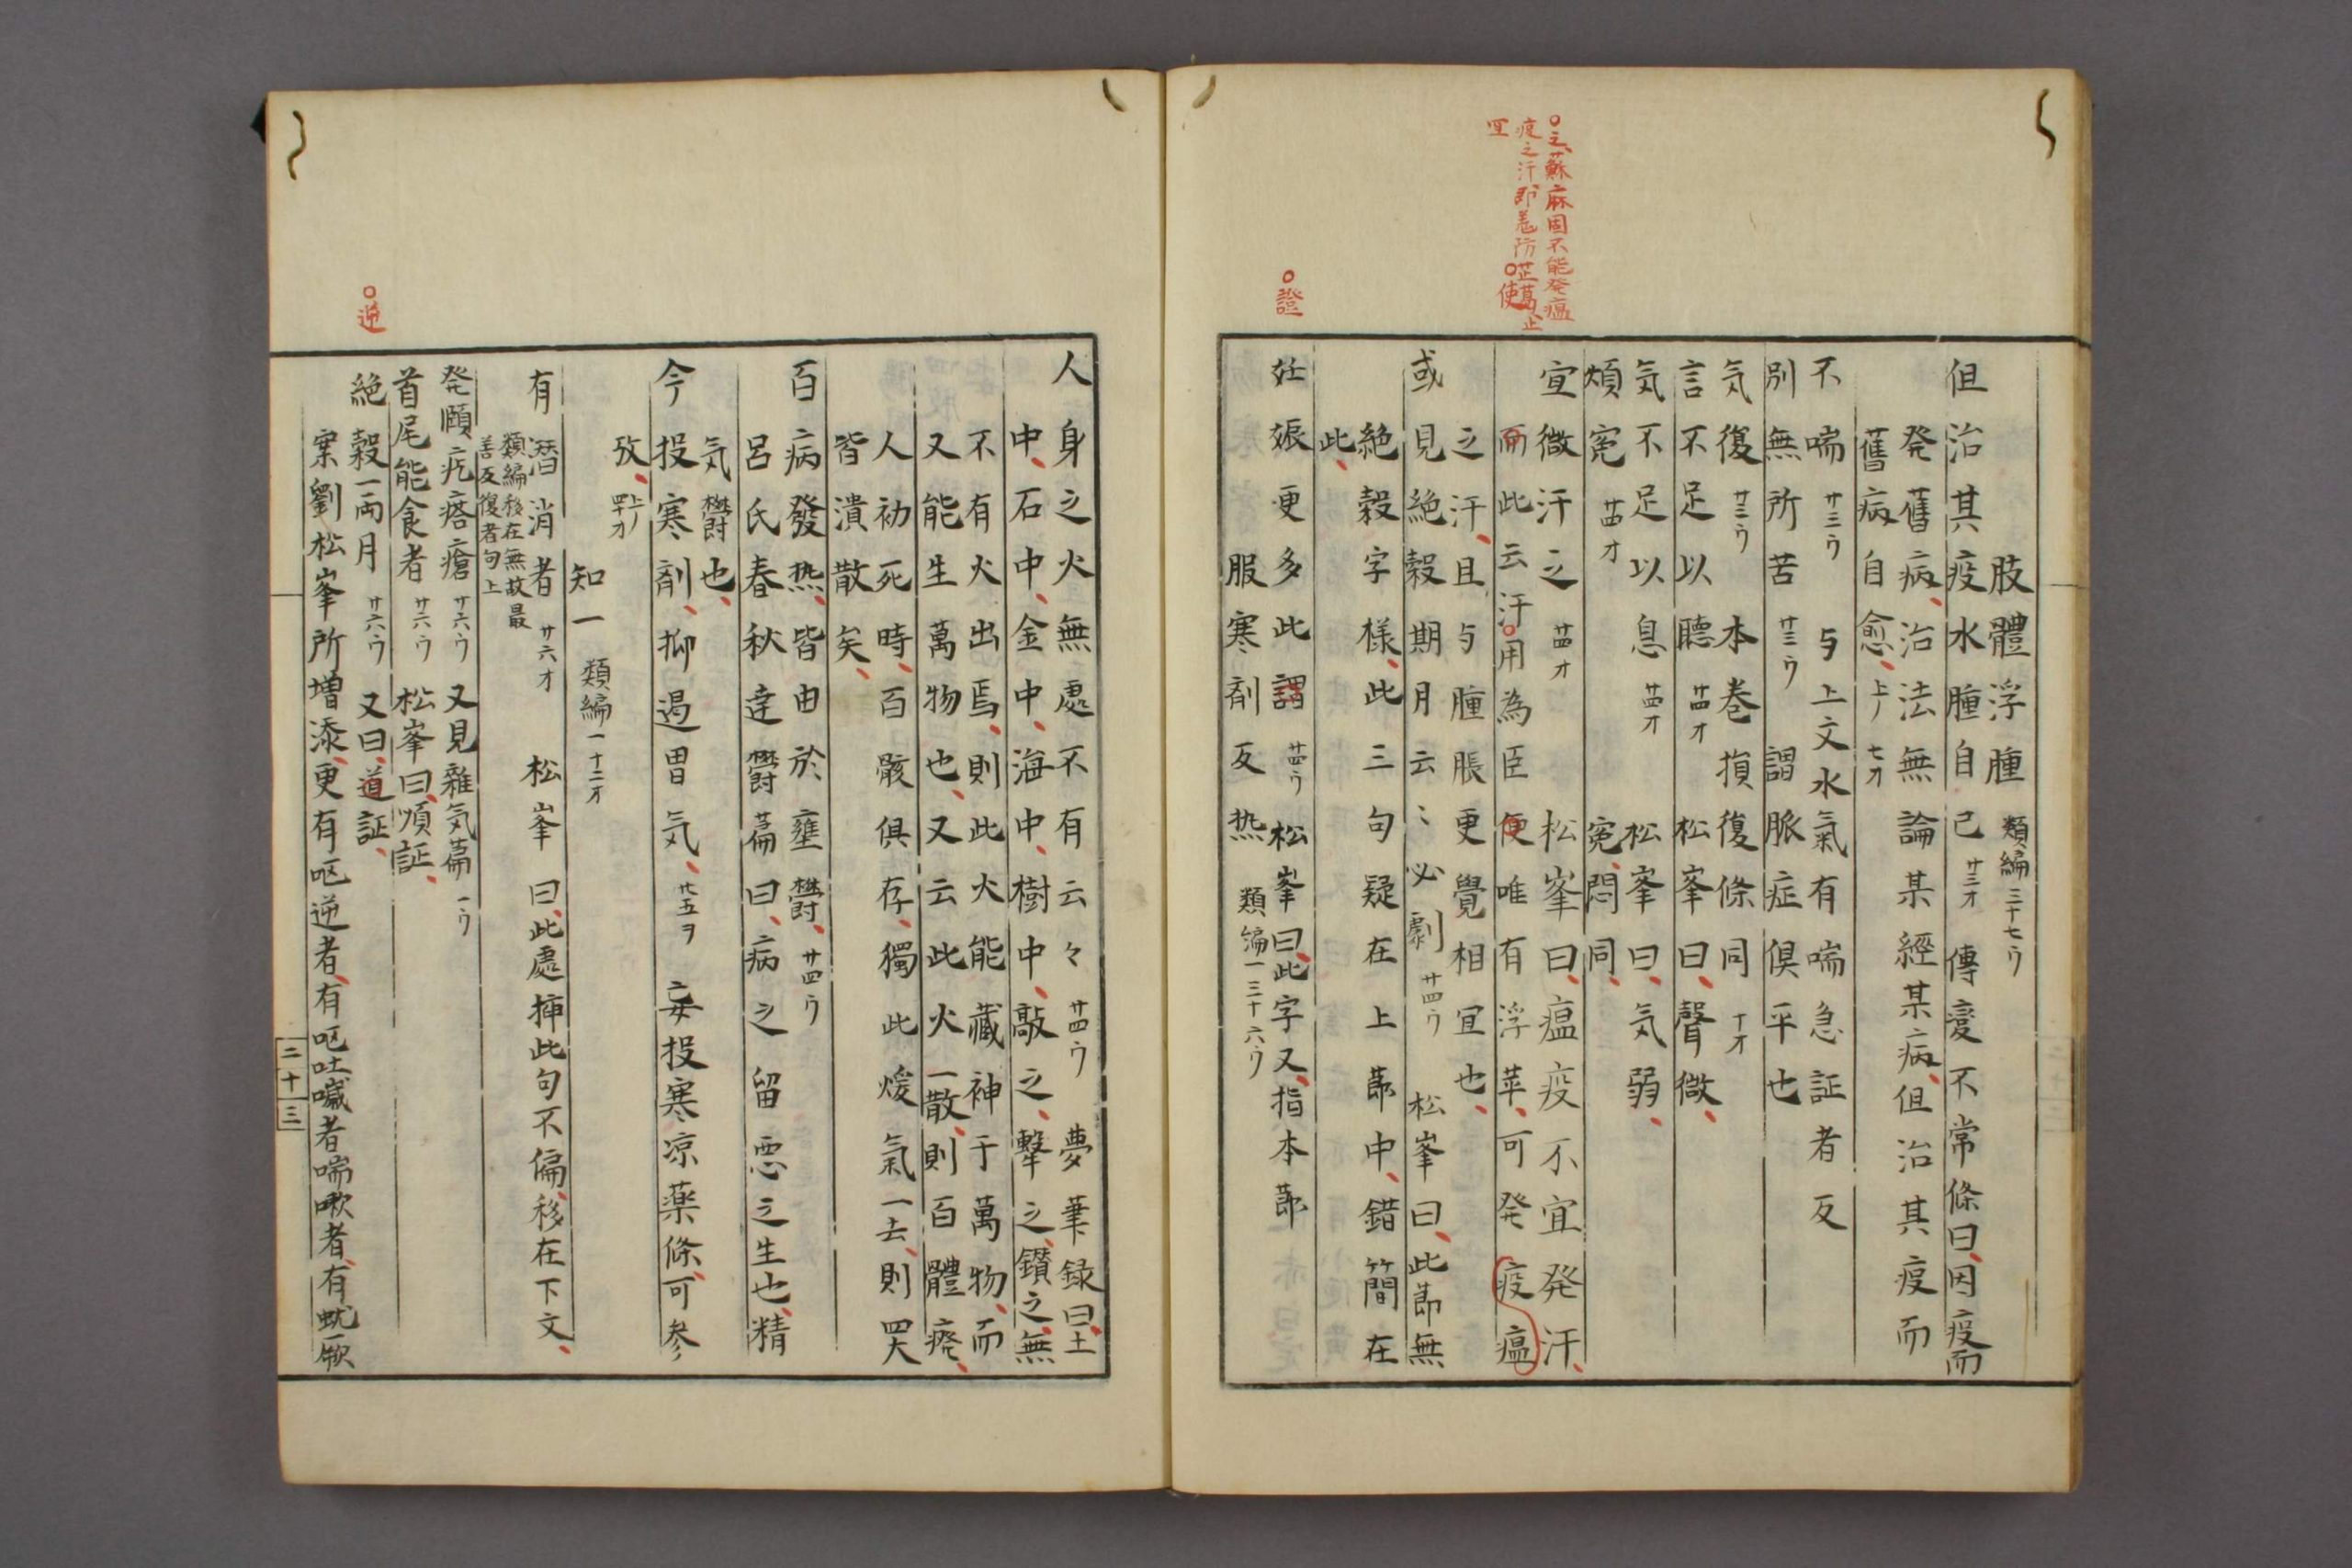 〇之、蘇麻固不能発瘟
疫之汗、即羗防芷葛、止
宜
〇使
〇證
肢體浮腫 類編三十七ウ
但治其疫水腫自已 廿三オ 傳変不常條曰、因疫而
発舊病、治法無論某經某病、但治其疫而
舊病自愈、 上ノ七オ
不喘 廿三ウ 与上文水氣有喘急証者反
別無所苦 廿三ウ 謂脈症倶平也
気復 廿三ウ 本巻損復條同 十オ
言不足以聴 廿四オ 松峯曰、聲微、
気不足以息 廿四オ 松峯曰、気弱、
煩寃 廿四オ 寃、悶同、
宜微汗之 廿四オ 松峯曰、瘟疫不宜発汗、
而此云汗用為臣便唯有浮萍、可発疫瘟
之汗、且与腫脹更覺相宜也、
或見絶穀期月云〻必劇 廿四ウ 松峯曰、此節無
絶穀字様、此三句疑在上節中、錯簡在
此、
妊娠更多此謂 廿四ウ 松峯曰、此字又指本節
服寒剤反热 類編一三十六ウ
人身之火無處不有云々 廿四ウ 夢筆録曰、土
中、石中、金中、海中、樹中、敲之、撃之、鑚之、無
不有火出焉、則此火能藏神于萬物、而
又能生萬物也、又云此火一散、則百體瘁、
人初死時、百骸俱存、獨此煖氣一去、則四大
皆潰散矣、
百病發热、皆由於壅欝、 廿四ウ
呂氏春秋達欝篇曰、病之留悪之生也、精
気欝也、
今投寒剤、抑遏胃気、 廿五ヲ 妄投寒涼薬條、可参
攷、 上ノ四十オ
知一 類編一十二オ
有潛消者 廿六オ 松峯曰、此處揷此句不偏、移在下文、
類編移在無故最
善反復者句上
発頤疙瘩瘡 廿六ウ 又見雜気篇 一ウ
首尾能食者 廿六ウ 松峯曰、順証、
絶穀一両月 廿六ウ 又曰、道証、
〇逆
案劉松峯所増添、更有呕逆者、有呕吐噦者喘嗽者、有蚘厥
二十三